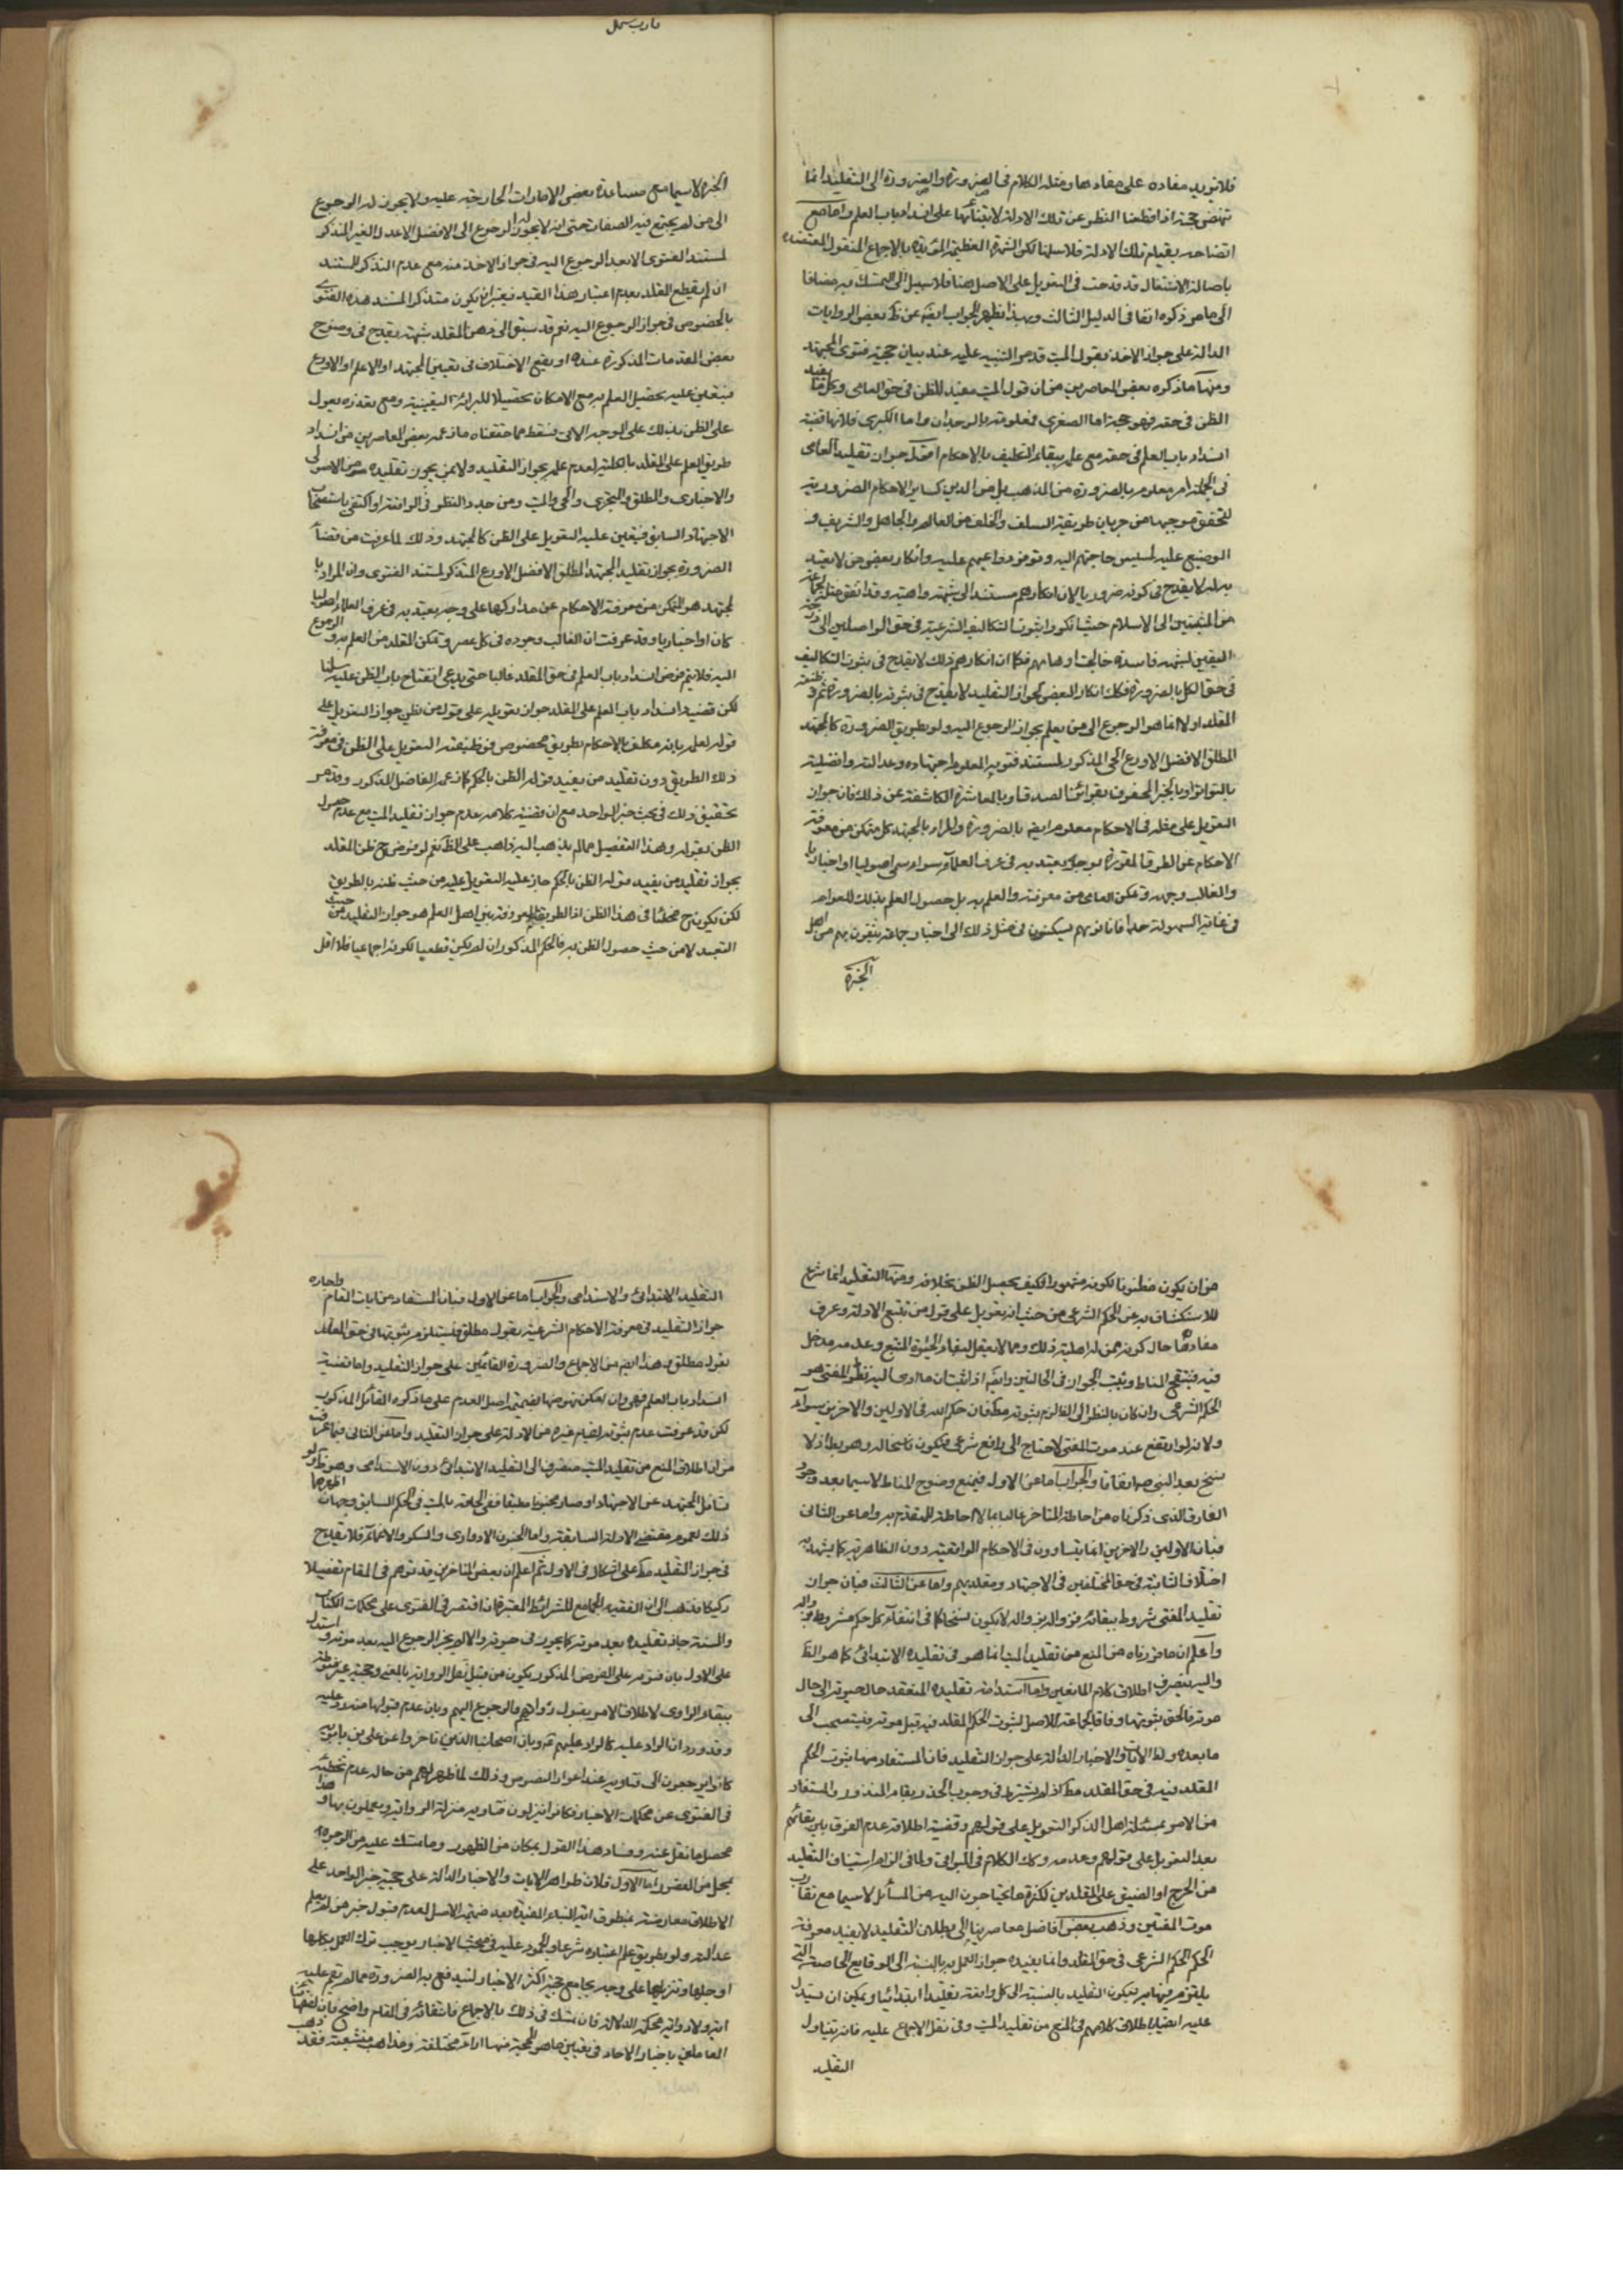 فلا يزيد مفاده على مفادها ومثله الكلام فى الضرورة والضرورة الى التقليد انما
تنهض حجة اذا قطعنا النظر عن تلك الادلة لابتنائها على انسداد باب العلم واما مع
انفتاحه بقيام تلك الادلة فلا سلمنا لكن الشهرة العظيمة المؤيدة بالاجماع المنقول المعتضدة
باصالة الاشتغال قد قدحت فى التعويل على الاصل هنا فلا سبيل الى التمسك به مضافا
الى ما مر ذكره انفا فى الدليل الثالث وبهذا يظهر الجواب ايضا عن بعض الروايات
الدالة على جواز الاخذ بقول الميت وقد مر التنبيه عليه عند بيان حجية فتوى المجتهد
ومنها ما ذكره بعض المعاصرين من ان قول الميت مفيد للظن فى حق العامى وكلما يفيد
الظن فى حقه فهو حجة اما الصغرى فمعلومة بالوجدان واما الكبرى فلانها قضية
انسداد باب العلم فى حقه مع علمه ببقاء التكليف بالاحكام اقول جواز تقليد العامى
فى الجملة امر معلوم بالضرورة من المذهب بل من الدين كساير الاحكام الضرورية
لتحقق موجبها من جريان طريقة السلف والخلف من العالم والجاهل والشريف و
الوضيع عليه لمسيس حاجتهم اليه وتوفر دواعيهم عليه وانكار بعض من لا يعتد
به له لا يقدح فى كونه ضروريا لان انكارهم مستند الى شبهة واهية وقد اتفق مثله لجماعة
من المنتمين الى الاسلام حيث انكروا ثبوت التكاليف الشرعية فى حق الواصلين الى درجة
اليقين لشبهة فاسدة خالجت اوهامهم فكما ان انكارهم ذلك لا يقدح فى ثبوت التكاليف
فى حق الكل بالضرورة فكذلك انكار البعض لجواز التقليد لا يقدح فى ثبوته بالضرورة ثم وظيفة
المقلد اولا انما هو الرجوع الى من يعلم بجواز الرجوع اليه ولو بطريق الضرورة كالمجتهد
المطلق الافضل الاورع الحى المذكور لمستند فتويه المعلوم اجتهاده وعدالته وافضليته
بالتواتر او بالخبر المحفوف بقرائن الصدق او بالمعاشرة الكاشفة عن ذلك فان جواز
التعويل على مثله فى الاحكام معلوم ايضا بالضرورة والمراد بالمجتهد كل متمكن من معرفة
الاحكام عن الطرق المقررة بوجه يعتد به فى عرف العلماء سواء سمى اصوليا او اخباريا
والغالب وجوده وتمكن العامى من معرفته والعلم به بل حصول العلم بذلك للعوام
فى غاية السهولة جدا فانا نريهم يسكنون فى مثل ذلك الى اخبار جماعة يثقون بهم من اهل
الخبرة
الخبرة لا سيما مع مساعدة بعض الامارات الخارجية عليه ولا يجوز له الرجوع
الى من لم يجتمع فيه الصفات حتى انه لا يجوز له الرجوع الى الافضل الاعدل الغير المتذكر
لمستند الفتوى الا بعد الرجوع اليه فى جواز الاخذ منه مع عدم التذكر للمستند
ان لم يقطع المقلد بعدم اعتبار هذا القيد فيعتبر ان يكون متذكرا لمستند هذه الفتوى
بالخصوص فى جواز الرجوع اليه نعم قد سبق الى ذهن المقلد شبهة يقدح فى وضوح
بعض المقدمات المذكورة عنده او يقع الاختلاف فى تعيين المجتهد او الاعلم او الاورع
فيتعين عليه تحصيل العلم به مع الامكان تحصيلا للبرائة اليقينية ومع تعذره يعول
على الظن بذلك على الوجه الاتى فسقط مما حققناه ما زعمه بعض المعاصرين من انسداد
طريق العلم على المقلد بالكلية لعدم علمه بجواز التقليد ولا بمن يجوز تقليده من الاصولى
والاخبارى والمطلق والمتجزى والحى والميت ومن جدد النظر فى الواقعة او اكتفى باستصحاب
الاجتهاد السابق فيتعين عليه التعويل على الظن كالمجتهد وذلك لما عرفت من قضاء
الضرورة بجواز تقليد المجتهد المطلق الافضل الاورع المتذكر لمستند الفتوى وان المراد بالمجتهد
هو المتمكن من معرفة الاحكام عن مداركها على وجه يعتد به فى عرف العلماء اصوليا
كان او اخباريا وقد عرفت ان الغالب وجوده فى كل عصر وتمكن المقلد من العلم به والرجوع
اليه فلا يتم فرض انسداد باب العلم فى حق المقلد غالبا حتى يدعى انفتاح باب الظن عليه سلمنا
لكن قضية انسداد باب العلم على المقلد جواز تعويله على قول من يظن جواز التعويل على
قوله لعلمه بانه مكلف بالاحكام بطريق مخصوص فوظيفته التعويل على الظن فى معرفة
ذلك الطريق دون تقليد من يفيد قوله الظن بالحكم كما زعمه الفاضل المذكور وقد مر
تحقيق ذلك فى بحث خبر الواحد مع ان قضية كلامه عدم جواز تقليد الميت مع عدم حصول
الظن بقوله وهذا التفصيل مما لم يذهب اليه ذاهب على الظ نعم لو فرض ح ظن المقلد
بجواز تقليد من يفيد قوله الظن بالحكم جاز عليه التعويل عليه من حيث ظنه بالطريق
لكن يكون ح مخطئا فى هذا الظن اذ الطريقة المعروفة بين اهل العلم هو جواز التقليد من حيث
التعبد لا من حيث حصول الظن به فالحكم المذكور ان لم يكن قطعيا لكونه اجماعيا فلا اقل
من ان يكون مظنونا لكونه مشهورا فكيف يحصل الظن بخلافه ومنها التقليد انما شرع
للاستكشاف به عن الحكم الشرعى من حيث انه تعويل على قول من تتبع الادلة وعرف
مفادها حال كونه ممن له اهلية ذلك ومما لا يعقل لبقاء الحيوة المتبع وعدمه مدخل
فيه فينتقح المناط ويثبت الجواز فى الحالتين وايضا اذا ثبت ان ما ادى اليه نظر المفتى هو
الحكم الشرعى وان كان بالنظر الى الظ لزم ثبوته مط فان حكم الله فى الاولين والاخرين سواء
ولانه لو ارتفع عند موت المفتى لاحتاج الى رافع شرعى فيكون ناسخا له وهو بط اذ لا
نسخ بعد النبى ص اتفاقا والجواب اما عن الاول فبمنع وضوح المناط لا سيما بعد وجود
الفارق الذى ذكرناه من احاطة المتاخر غالبا بما لا احاطة للمتقدم به واما عن الثانى
فبان الاولين والاخرين انما يتساوون فى الاحكام الواقعية دون الظاهرية كما يشهد به
اختلاف الثابتة فى حق المختلفين فى الاجتهاد ومقلديهم واما عن الثالث فبان جواز
تقليد المفتى مشروط ببقائه فزواله بزواله لا يكون نسخا كما فى انتفاء كل حكم مشروط بزواله
واعلم ان ما قررناه من المنع من تقليد الميت انما هو فى تقليده الابتدائى كما هو الظ
واليه ينصرف اطلاق كلام المانعين واما استدامة تقليده المنعقد حال حيوته الى حال
موته فالحق ثبوتها وفاقا لجماعة للاصل لثبوت الحكم المقلد فيه قبل موته فيستصحب الى
ما بعده ولظ الايات والاخبار الدالة على جواز التقليد فان المستفاد منها ثبوت الحكم
المقلد فيه فى حق المقلد مط اذ لم يشترط فى وجوب الحذر بقاء المنذر والمستفاد
من الامر بمسئلة اهل الذكر التعويل على قولهم وقضية اطلاقه عدم الفرق بين بقائهم
بعد التعويل على قولهم وعدمه وكذا الكلام فى البواقى ولما فى الزام استيناف التقليد
من الحرج او الضيق على المقلدين لكثرة ما يحتاجون اليه من المسائل لا سيما مع تقارب
موت المفتين وذهب بعض افاضل معاصرينا الى بطلان التقليد لا يفيد معرفة
الحكم الشرعى فى حق المقلد وانما يفيده جواز العمل به بالنسبة الى الوقايع الخاصة التى
يلتزم فيها به فيكون التقليد بالنسبة الى كل واقعة تقليدا ابتدائيا ويمكن ان يستدل
عليه ايضا باطلاق كلامهم فى المنع من تقليد الميت وفى نقل الاجماع عليه فانه يتناول
التقليد
التقليد الابتدائى والاستدامى والجواب اما عن الاول فبان المستفاد من ايات المقام واخباره
جواز التقليد فى معرفة الاحكام الشرعية بقول مطلق فيستلزم ثبوتها فى حق المقلد
بقول مطلق وهذا ايضا من الاجماع والضرورة القائمين على جواز التقليد واما قضية
انسداد باب العلم فهى وان امكن نهوضها بضميمة اصل العدم على ما ذكره القائل المذكور
لكن قد عرفت عدم ثبوته لقيام غيره من الادلة على جواز التقليد واما عن الثانى فبما عرفت
من ان اطلاق المنع من تقليد الميت منصرف الى التقليد الابتدائى دون الاستدامى وهو ظ ولو
تنازل المجتهد عن الاجتهاد او صار مجنونا مطبقا ففى الحاقه بالميت فى الحكم السابق وجهان اظهرهما
ذلك لعموم مقتضى الادلة السابقة واما الجنون الادوارى والسكر والاغماء فلا يقدح
فى جواز التقليد مط على اشكال فى الاول ثم اعلم ان بعض المتاخرين قد توهم فى المقام تفصيلا
ركيكا فذهب الى ان الفقيه الجامع للشرائط المعتبرة ان اقتصر فى الفتوى على محكمات الكتاب
والسنة جاز تقليده بعد موته كما يجوز فى حيوته والا لم يجز الرجوع اليه بعد موته واستدل
على الاول بان فتويه على الفرض المذكور يكون من قبيل نقل الرواية بالمعنى وحجيته غير منوطة
ببقاء الراوى لاطلاق الامر بقبول رواياتهم والرجوع اليهم وبان عدم قبولها منه رد عليه
وقد ورد ان الراد عليه كالراد عليهم ع وبان اصحابنا الذين تاخروا عن على بن بابويه
كانوا يرجعون الى فتاويه عند اعواز النصوص وذلك لما ظهر لهم من حاله عدم تخطيه
فى الفتوى عن محكمات الاخبار فكانوا ينزلون فتاويه منزلة الرواية ويعملون بها وهذا
محصل ما نقل عنه وفساد هذا القول بمكان من الظهور وما تمسك عليه من الوجوه
بمحل من القصور اما الاول فلان ظواهر الايات والاخبار الدالة على حجية خبر الواحد على
الاطلاق معارضة بمنطوق اية النباء المفيدة بعد ضميمة الاصل لعدم قبول خبر من لم يعلم
عدالته ولو بطريق علم اعتباره شرعا والجمود عليه فى مبحث الاخبار يوجب ترك العمل بكلها
او جلها وتنزيلها على وجه يجامع حجية اكثر الاخبار لنيدفع به الضرورة مما لم يقم عليه
اية ولا رواية محكمة الدلالة فان تمسك فى ذلك بالاجماع فانتفائه فى المقام واضح فان لفقهائنا
العاملين باخبار الاحاد فى تعيين ما هو الحجة منها اراء مختلفة ومذاهب متشعبة فقد ذهب